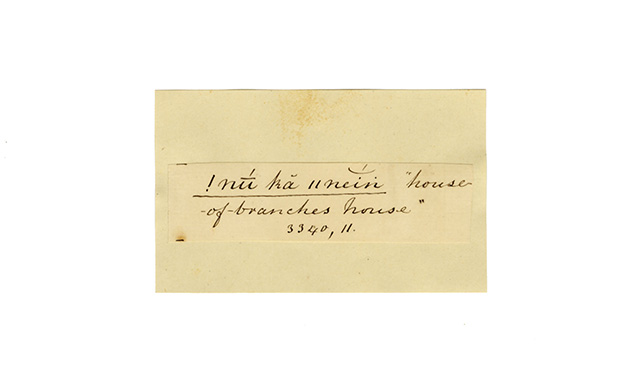 !nú kă ǁneíń "house-
-of-branches house"
3340, 11.